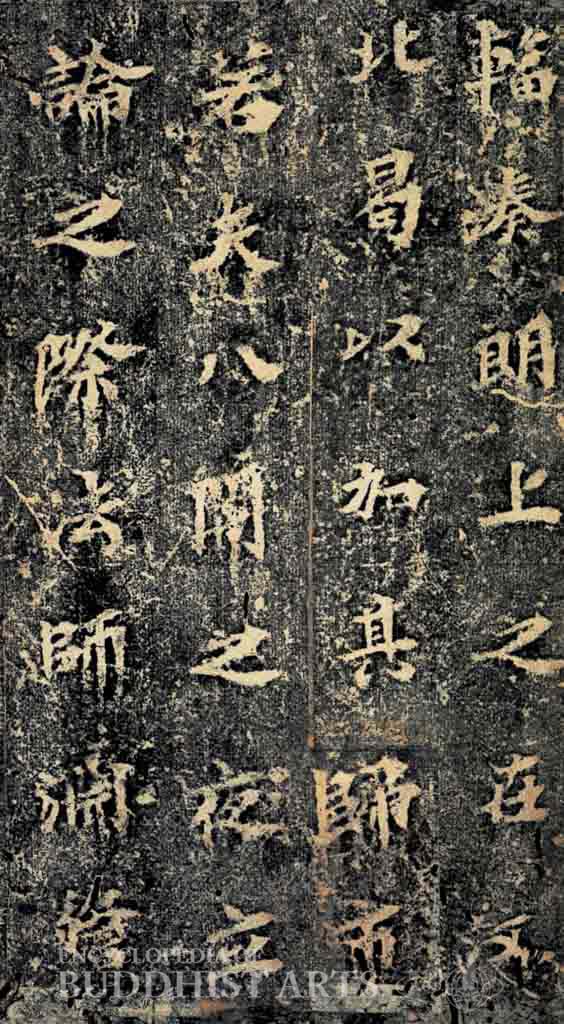 輻湊明上之在汶
北曷以加其歸市
若夫八關之夜立
論之際法師淵
ENCYCLOPEDIA OF
BUDDHIST ARTS